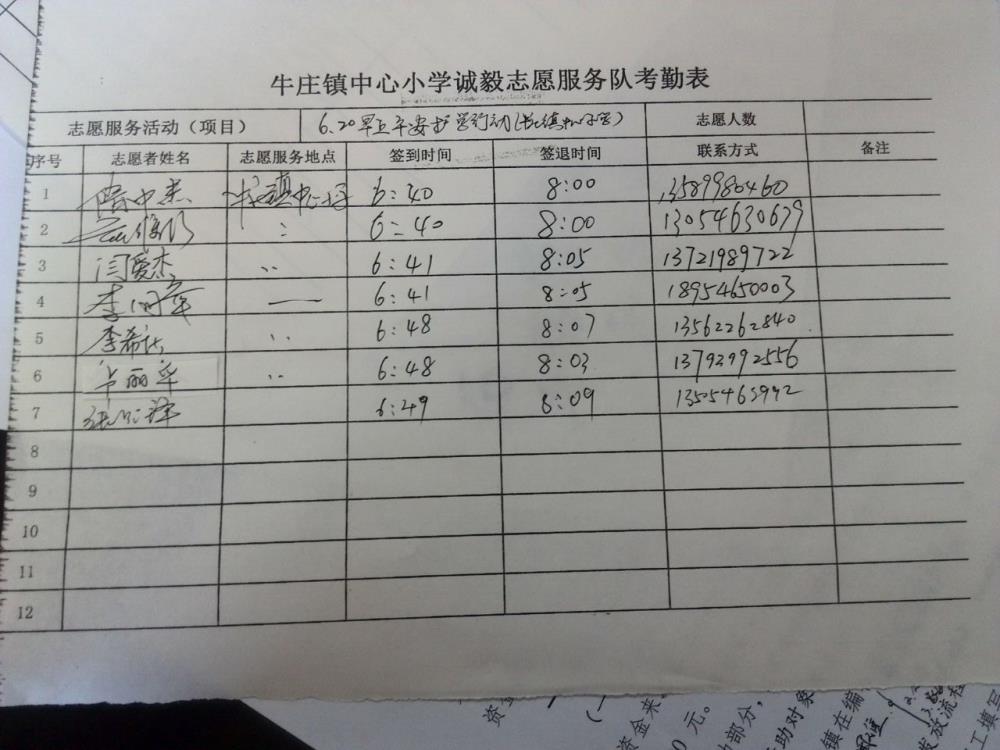 牛庄镇中心小学诚毅志愿服务队考勤表
志愿服务活动（项目） 6.20早上平安护学行动 志愿人数
序号 志愿者姓名 志愿服务地点 签到时间 签退时间 联系方式 备注
1 6:40 8:00 13589980460
2 6:40 8:00 13054630679
3 闫爱杰 6:41 8:05 13721989722
4 6:41 8:05 18954650003
5 李希 6:48 8:07 13562262840
6 丽华 6:48 8:03 13792992556
7 6:49 8:09
8
9
10
11
12
资金
资金来
元。
部分，
助对象
镇在编
发放流程
工填写